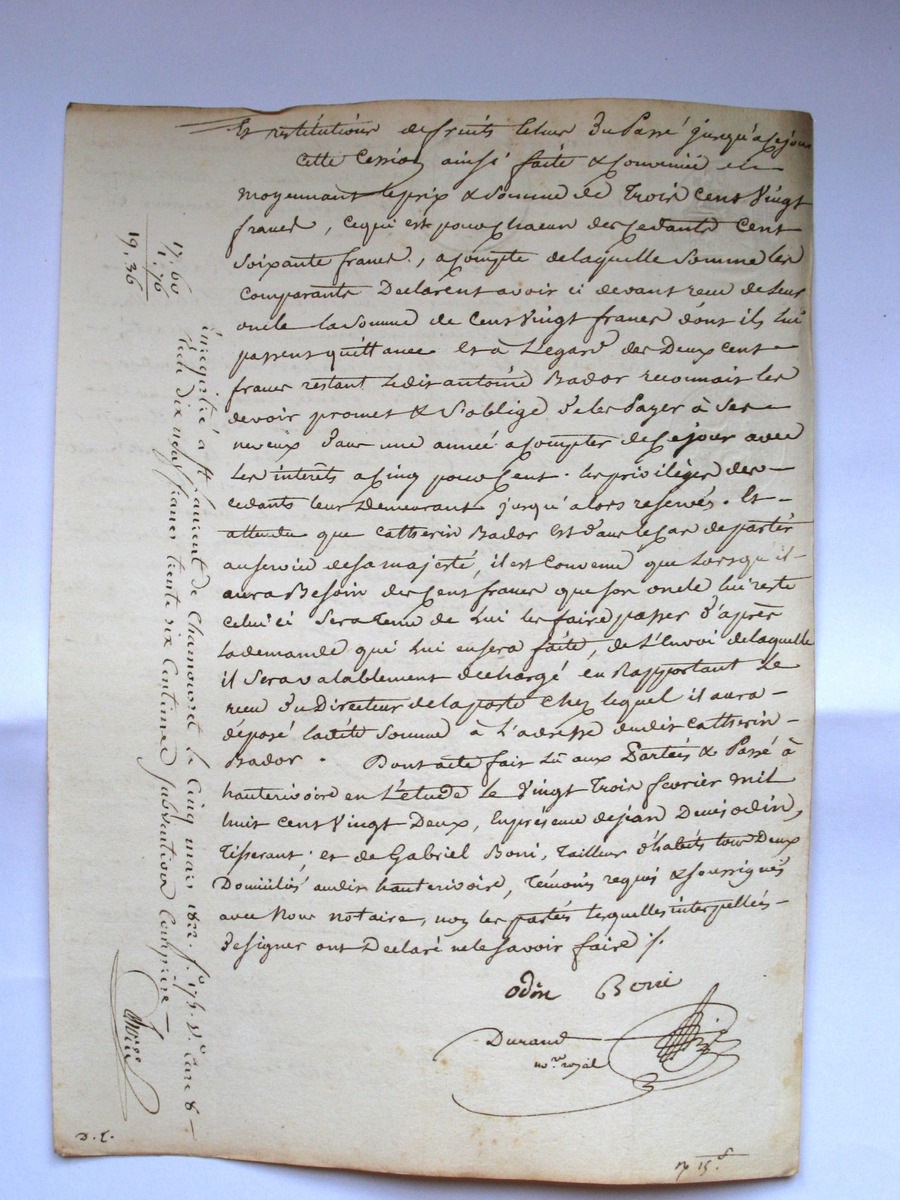 Et restitutions de fruits tehus du Passé jusqu'a ce jour
cette Cession ainsi faite & Convenüe
moyennant le prix & Somme de Trois Cent Vingt
francs, cequi est pour Chacun des Cedants Cent
Soixante francs, acompte de laquelle Somme les
Comparants Declarent avoir ci devant recu de leur
oncle la Somme de Cent Vingt francs dont ils lui
passent quittance Et à Légard des Deux cent
francs restant Ledit antoine Bador reconnait les
devoir promet & S'oblige de les Payer à Ses
neveux dans une année acompter de Ce jour avec
Les interêts a Cinq pour Cent. les privilèges des
cedants leur Demeurant jusqu'alors reservés. Et
attendu que Catherin Bador Est dans le Cas de partir
au service de sa majesté, il est Convenu que Lorsqu'il
aura Besoin des Cent francs que son oncle lui reste
Celui ci Sera Tenu de Lui les faire passer d'après
La demande qui Lui en sera faite, de L'Envoi de laquelle
il Sera valablement dechargé en Rapportant Le
recu du Directeur de la poste Chez lequel il aura
déposé ladite Somme à L'adresse dudit Catherin
Bador. Dont acte fait Lû aux Parties & Passé à
hauterivoire en L'etude le Vingt Trois fevrier mil
huit Cent Vingt Deux, En présence de jean Denis odin,
Tisserant, et de Gabriel Boni, Tailleur d'habits tous Deux
Domiciliés audit hauterivoire, Témoins requis & soussignés
avec Nous notaire, non les parties lesquelles interpellées
de signer ont Declaré ne le Savoir faire ./.
Odin Boni
Durand
no.re royal
17, 60
1, 76
19, 36
Enregistré à St Laurent de Chamousset le Cinq mars 1822. f.o 175. V.o Case 8
Reçu dix neuf francs trente six Centimes Subvention Comprise
D. E.
15